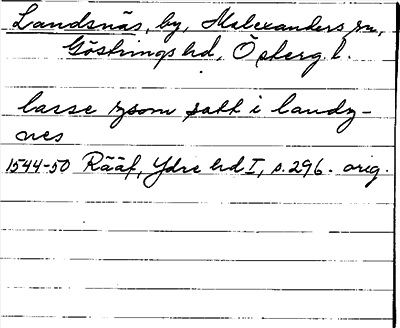 Landsnäs, by, Malexanders sn,
Göstrings hd, Östergl.
lasse som satt i landz-
nes
1544-50 Rääf, Ydre hd I, s. 296. orig.